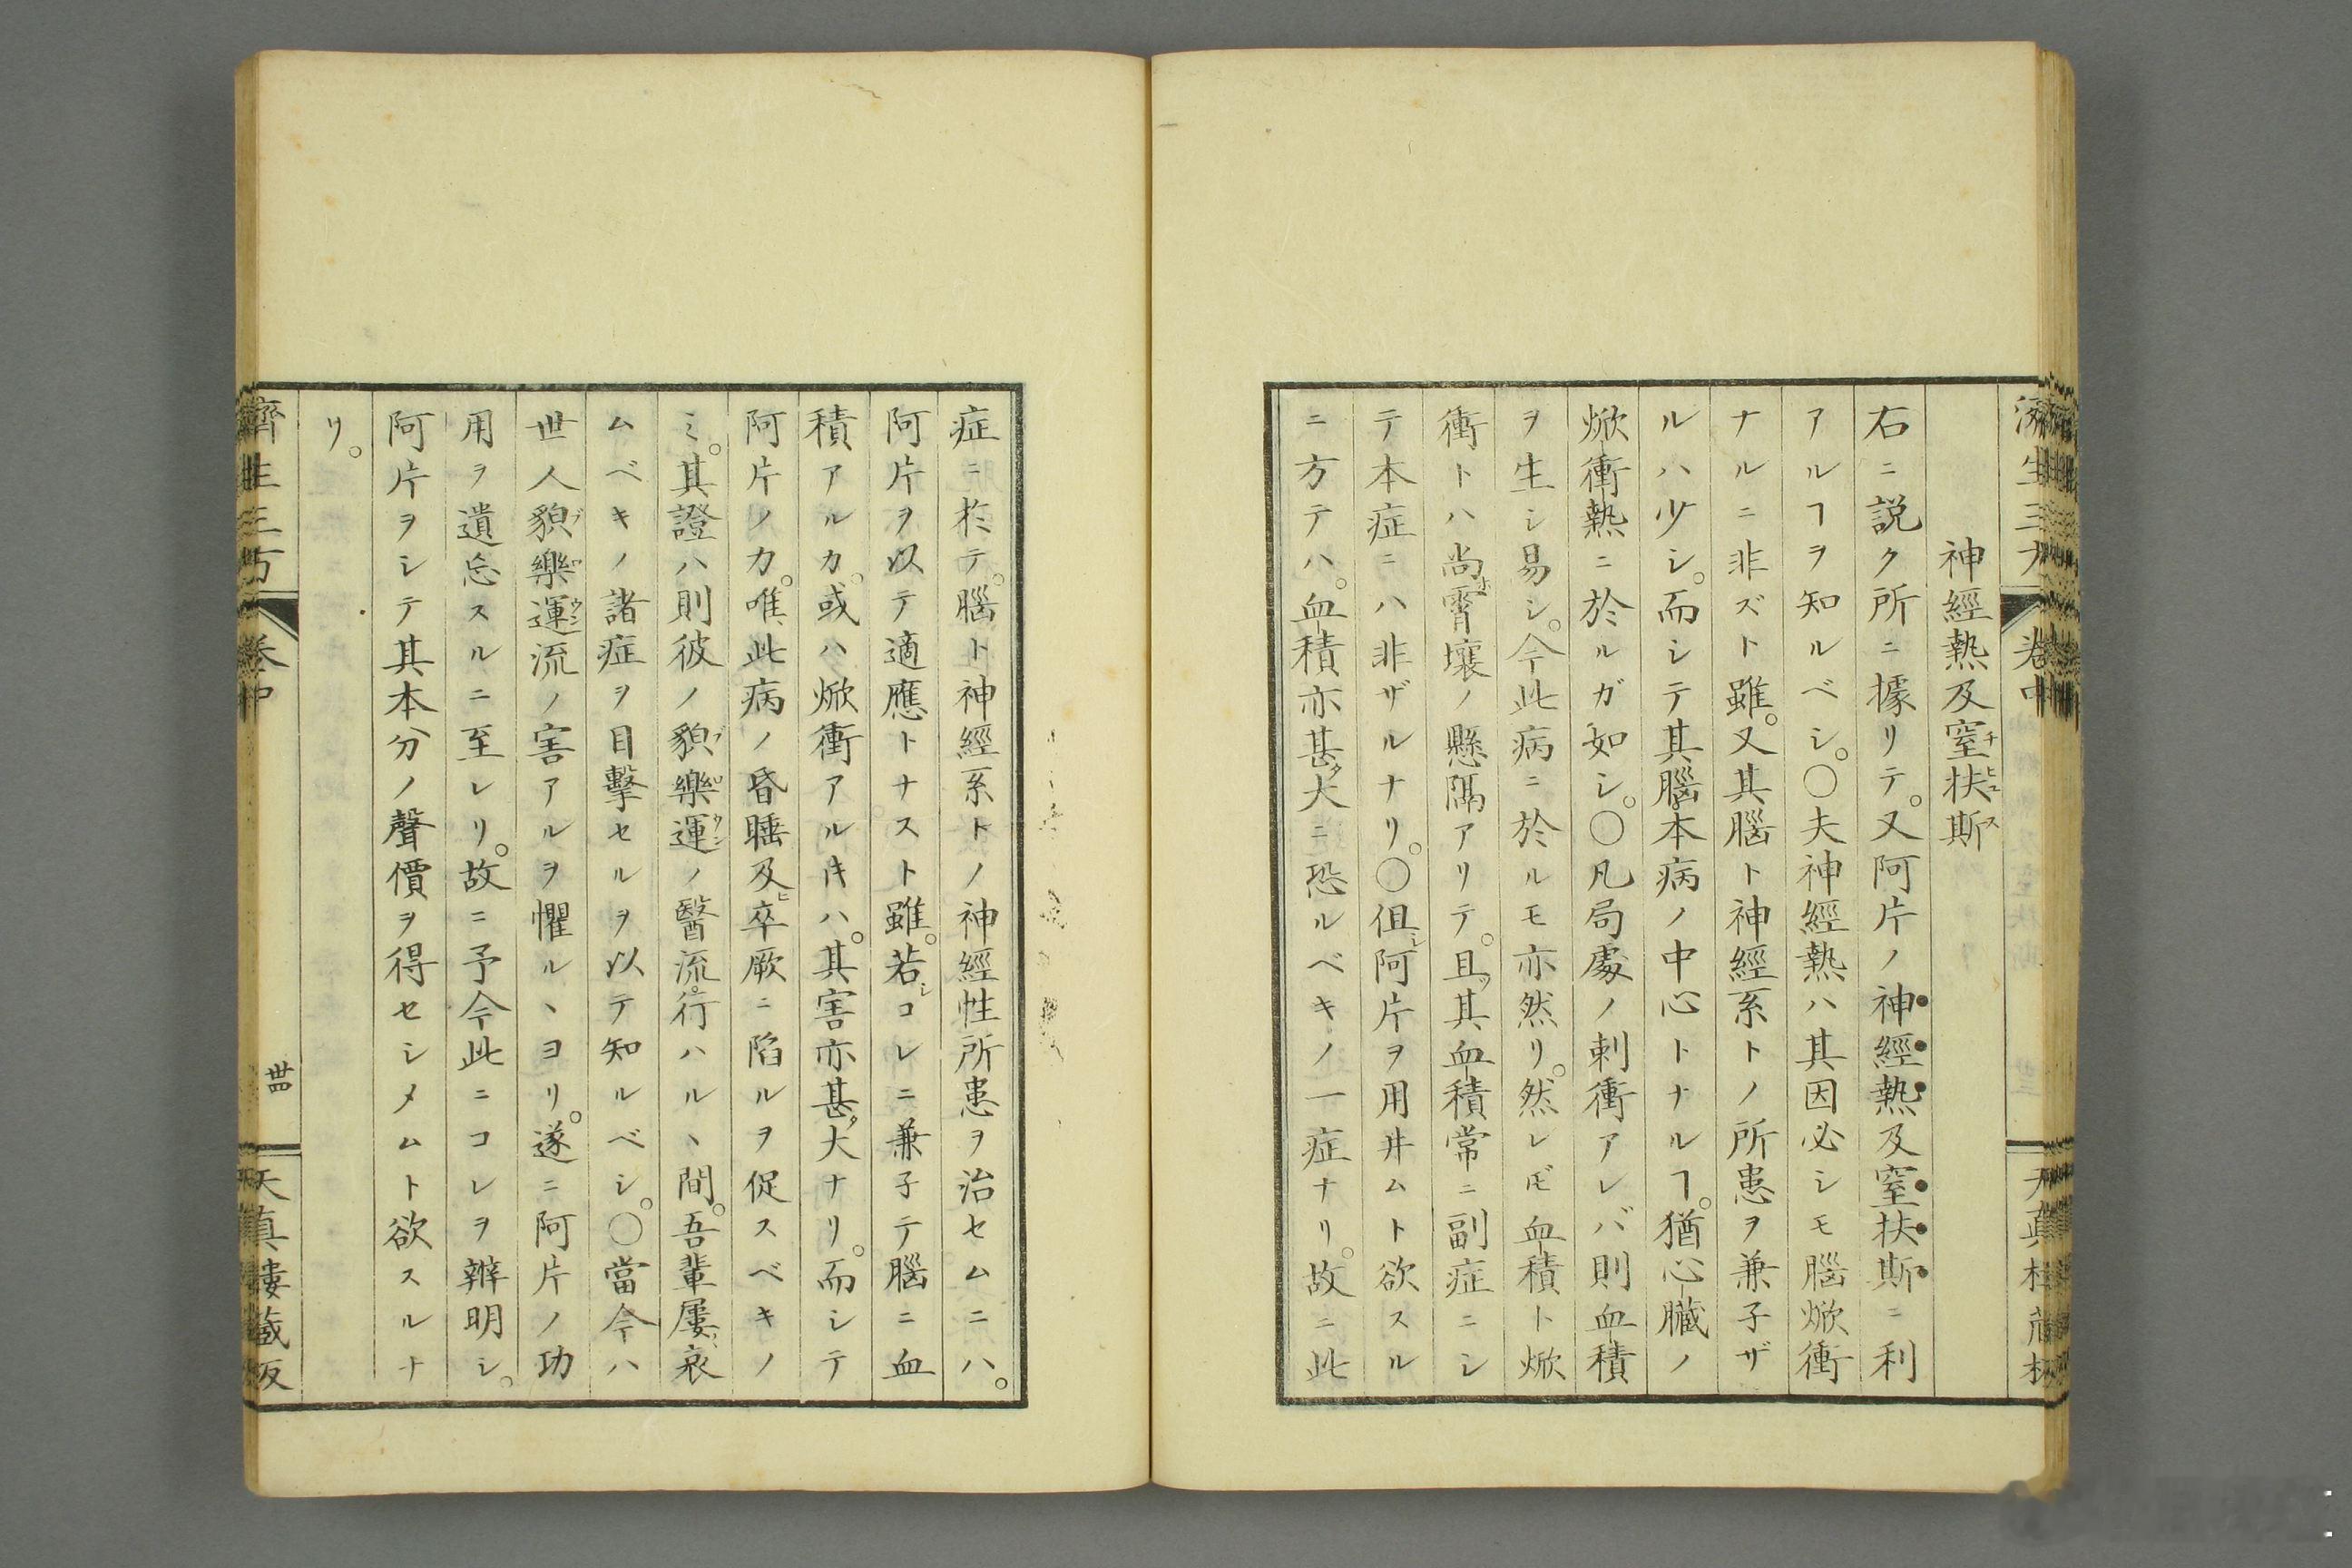 濟生三方 卷中 天真樓蔵板
神經熱及窒扶斯
右ニ説ク所ニ據リテ。又阿片ノ神經熱及窒扶斯ニ利
アルヿヲ知ルベシ。〇夫神經熱ハ其因必シモ腦焮衝
ナルニ非ズト雖。又其腦ト神經系トノ所患ヲ兼子ザ
ルハ少シ。而シテ其腦本病ノ中心トナルヿ。猶心臓ノ
焮衝熱ニ於ルガ如シ。〇凡局處ノ刺衝アレバ則血積
ヲ生シ易シ。今此病ニ於ルモ亦然リ。然レ𪜈血積ト焮
衝トハ尚霄壤ノ懸隔アリテ。且ツ其血積常ニ副症ニシ
テ本症ニハ非ザルナリ。〇伹シ阿片ヲ用井ムト欲スル
ニ方テハ。血積亦甚タ大ニ恐ルベキノ一症ナリ。故ニ此
症ニ於テ。腦ト神經系トノ神經性所患ヲ治セムニハ。
阿片ヲ以テ適應トナスト雖。若シコレニ兼子テ腦ニ血
積アルカ。或ハ焮衝アル𪜈ハ。其害亦甚タ大ナリ。而シテ
阿片ノ力。唯此病ノ昏睡及ヒ卒厥ニ陷ルヲ促スベキノ
ミ。其證ハ則彼ノ貌樂運ノ醫流行ハルヽ間。吾輩屢哀
ムベキノ諸症ヲ目擊セルヲ以テ知ルベシ。〇當今ハ
世人貌樂運流ノ害アルヲ懼ルヽヨリ。遂ニ阿片ノ功
用ヲ遺忘スルニ至レリ。故ニ予今此ニコレヲ辨明シ。
阿片ヲシテ其本分ノ聲價ヲ得セシメムト欲スルナ
リ。
濟生三方 卷中 卌四 天真樓蔵板